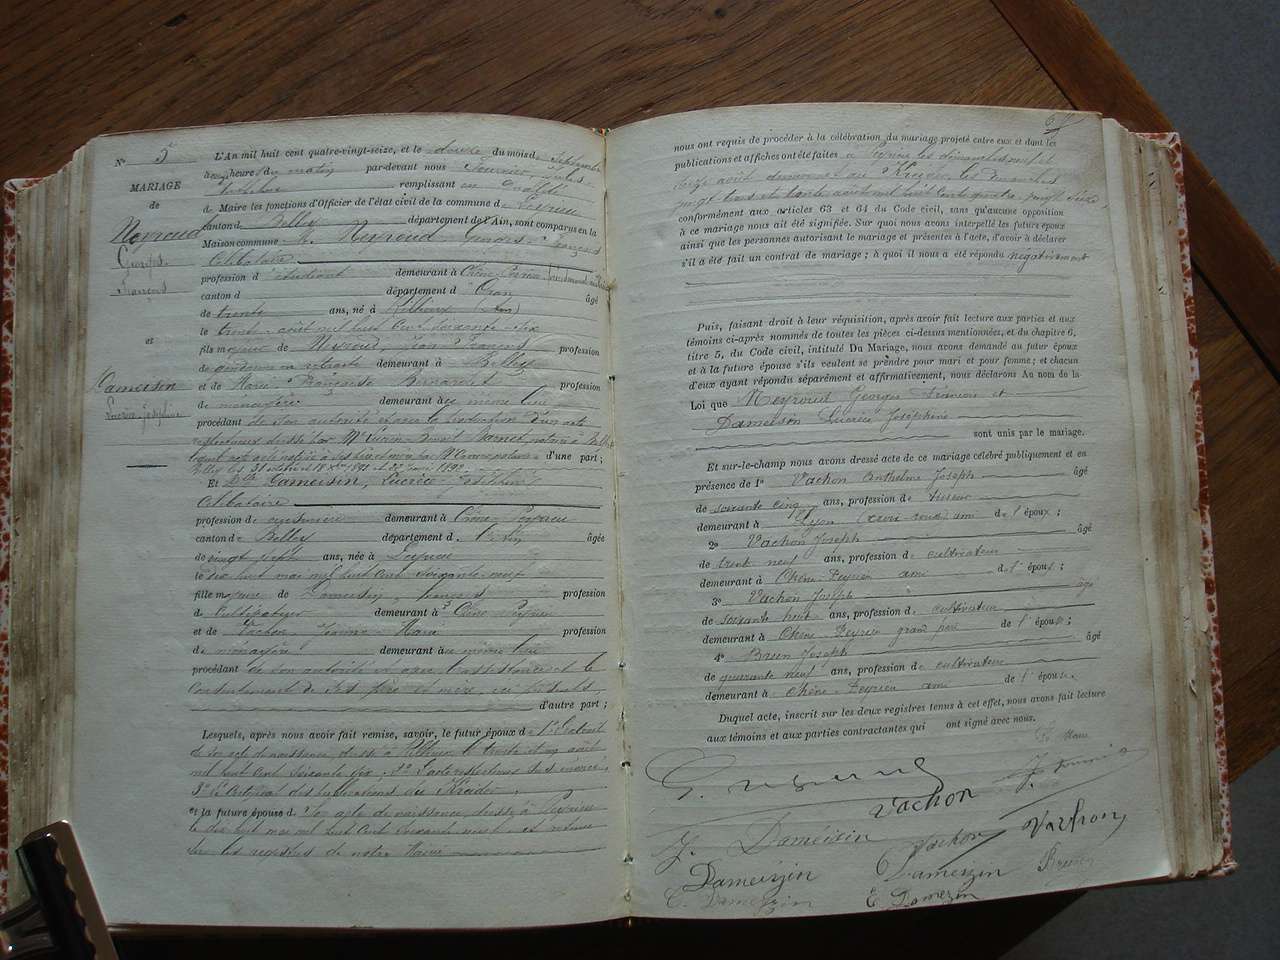 N° 5
MARIAGE
de
Neyroud
Georges
François
et
Dameisin
Lucrèce Joséphine
L'An mil huit cent quatre-vingt-seize, et le douze du mois de Septembre
à heure du matin par-devant nous Fournier, Jules
remplissant en qualité
de Maire les fonctions d'Officier de l'état civil de la commune de Peyrieu
canton de Belley département de l'Ain, sont comparus en la
Maison commune M. Neyroud Georges François
Célibataire
profession d'étudiant demeurant à
canton d département d'Oran âgé
de trente ans, né à
le trente août mil huit cent soixante six
fils majeur de Neyroud Jean François profession
de gendarme en retraite demeurant à Belley
et de Marie Françoise profession
de ménagère demeurant au même lieu
procédant de son autorité et avec la
d'une part ;
Belley les 31 1891 et 1892
Et Dlle Dameisin, Lucrèce Joséphine
Célibataire
profession de demeurant à Chêne Peyrieu
canton de Belley département d l'Ain âgée
de vingt sept ans, née à Peyrieu
le dix huit mai mil huit cent soixante neuf
fille majeure de Dameisin, François profession
de Cultivateur demeurant à Chêne Peyrieu
et de Vachon Jeanne Marie profession
de ménagère demeurant au même lieu
procédant de son autorité et avec l'assistance et le
Consentement de ses père et mère, ici présents,
d'autre part ;
Lesquels, après nous avoir fait remise, savoir, le futur époux de 1° l'Extrait
de son acte de naissance, dressé à le trente et un août
mil huit cent soixante six, 2° L'acte
3° le Certificat des publications au Kreider
et la future épouse de Son acte de naissance, dressé à Peyrieu
le dix huit mai mil huit cent soixante neuf et
sur les registres de notre Mairie
nous ont requis de procéder à la célébration du mariage projeté entre eux et dont les
publications et affiches ont été faites à Peyrieu les dimanches neuf et
seize août au Kreider, les dimanches
vingt trois et trente août mil huit cent quatre-vingt seize,
conformément aux articles 63 et 64 du Code civil, sans qu'aucune opposition
à ce mariage nous ait été signifiée. Sur quoi nous avons interpellé les future époux
ainsi que les personnes autorisant le mariage et présentes à l'acte, d'avoir à déclarer
s'il a été fait un contrat de mariage ; à quoi il nous a été répondu négativement
Puis, faisant droit à leur réquisition, après avoir fait lecture aux parties et aux
témoins ci-après nommés de toutes les pièces ci-dessus mentionnées, et du chapitre 6,
titre 5, du Code civil, intitulé Du Mariage, nous avons demandé au futur époux
et à la future épouse s'ils veulent se prendre pour mari et pour femme ; et chacun
d'eux ayant répondu séparément et affirmativement, nous déclarons Au nom de la
Loi que Neyroud Georges François et
Dameisin Lucrèce Joséphine
sont unis par le mariage.
Et sur-le-champ nous avons dressé acte de ce mariage célébré publiquement et en
présence de 1° Vachon Anthelme Joseph âgé
de soixante cinq ans, profession de tisseur
demeurant à Lyon (croix-rousse) ami de l'époux ;
2° Vachon Joseph âgé
de trente neuf ans, profession de cultivateur
demeurant à Chêne Peyrieu ami de l'épouse ;
3° Vachon Joseph âgé
de soixante huit ans, profession de cultivateur
demeurant à Chêne Peyrieu grand père de l'épouse ;
4° Brun Joseph âgé
de quarante neuf ans, profession de cultivateur
demeurant à Chêne Peyrieu ami de l'épouse.
Duquel acte, inscrit sur les deux registres tenus à cet effet, nous avons fait lecture
aux témoins et aux parties contractantes qui ont signé avec nous.
Le Maire
G. Neyroud
J. Fournier
Vachon
J. Dameisin
Vachon
Vachon
Dameisin
Dameizin
Brun
C. Dameizin
E. Damezin